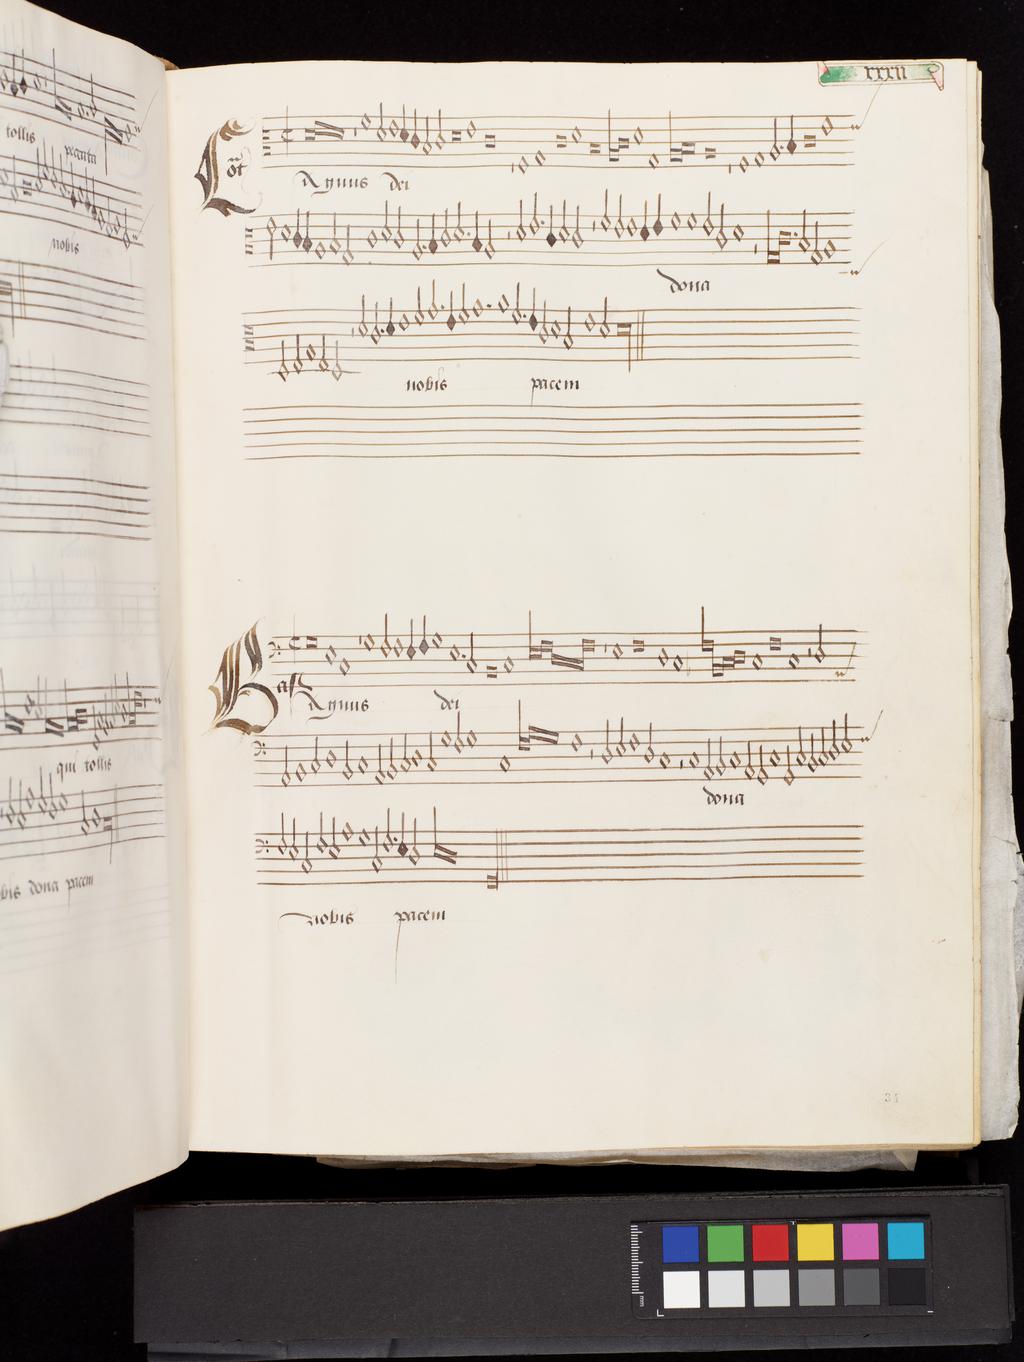 tollis peccata
nobis
qui tollis
bis dona pacem
xxxii
Cōt
Agnus dei
dona
nobis pacem
Bas
Agnus dei
dona
nobis pacem
34
mm